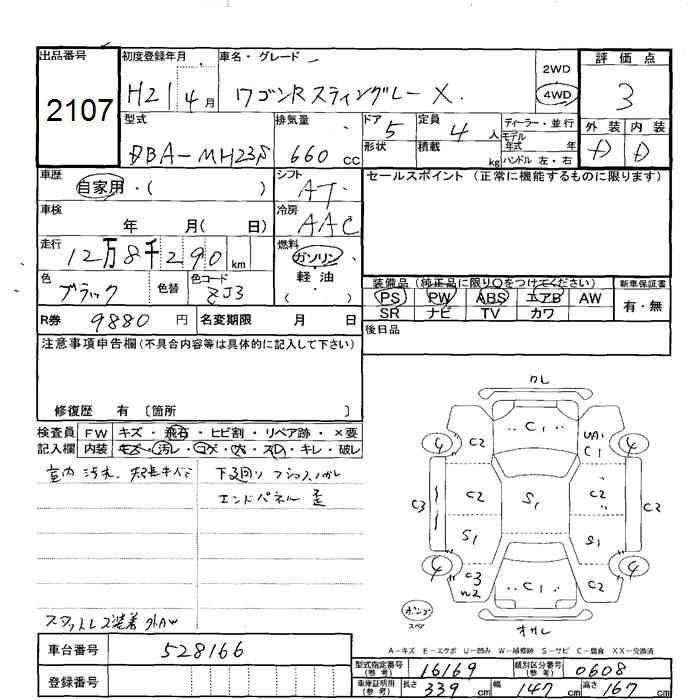 出品番号 初度登録年月 車名・グレード 評価点
2107 H21 4月 ワゴンR スティングレー X. 2WD 4WD 3
型式 排気量 ドア 定員 ディーラー・並行 外装 内装
DBA-MH23S 660cc 5 4人 モデル年式 年 D D
形状 積載 kg ハンドル 左・右
車歴 自家用・( ) シフト AT. セールスポイント (正常に機能するものに限ります)
車検 年 月(日) 冷房 AAC
走行 12万8千290km 燃料 ガソリン
軽油
( )
色 ブラック 色替 色コード ZJ3
装備品 (純正品に限り○をつけてください) 新車保証書
PS PW ABS エアB AW 有・無
SR ナビ TV カワ
R券 9880円 名変期限 月 日 後日品
注意事項申告欄(不具合内容等は具体的に記入して下さい)
修復歴 有 [箇所 ]
検査員 FW キズ・飛石・ヒビ割・リペア跡・×要
記入欄 内装 キズ・汚レ・コゲ・穴・スレ・キレ・破レ
室内 汚れ、 下廻り
エンドパネル 歪
スタットレス装着 外AW
ワレ
C1
4 C2 UA1 C1 4
C3 C2 S1 C2 C3
S1 S1
4 C3 W2 C1 C2 4
オサレ
A-キズ E-エクボ U-凹み W-補修跡 S-サビ C-腐食 XX-交換済
車台番号 528166
登録番号
型式指定番号(参考) 16169 類別区分番号(参考) 0608
車庫証明用(参考) 長さ 339cm 幅 147cm 高さ 167cm